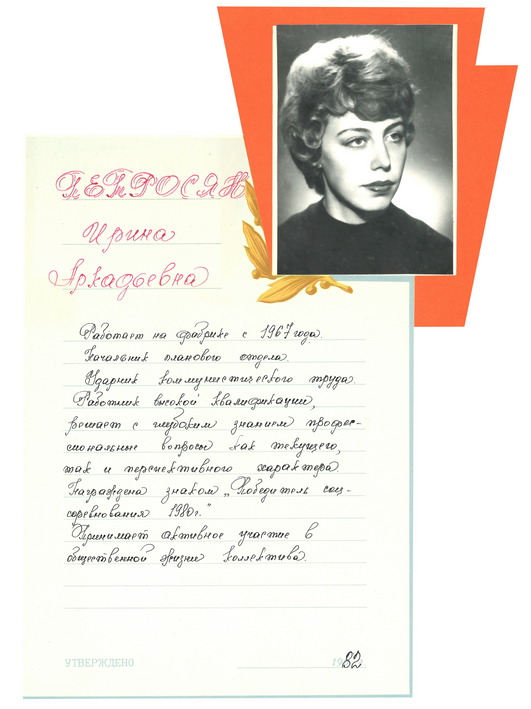 ПЕТРОСЯН
Ирина
Аркадьевна
Работает на фабрике с 1967 года.
Начальник планового отдела.
Ударник коммунистического труда.
Работник высокой квалификации,
решает с глубоким знанием профес-
сиональные вопросы как текущего,
так и перспективного характера
Награждена знаком „Победитель соц-
соревнования 1980г."
Принимает активное участие в
общественной жизни коллектива.
УТВЕРЖДЕНО 1982.